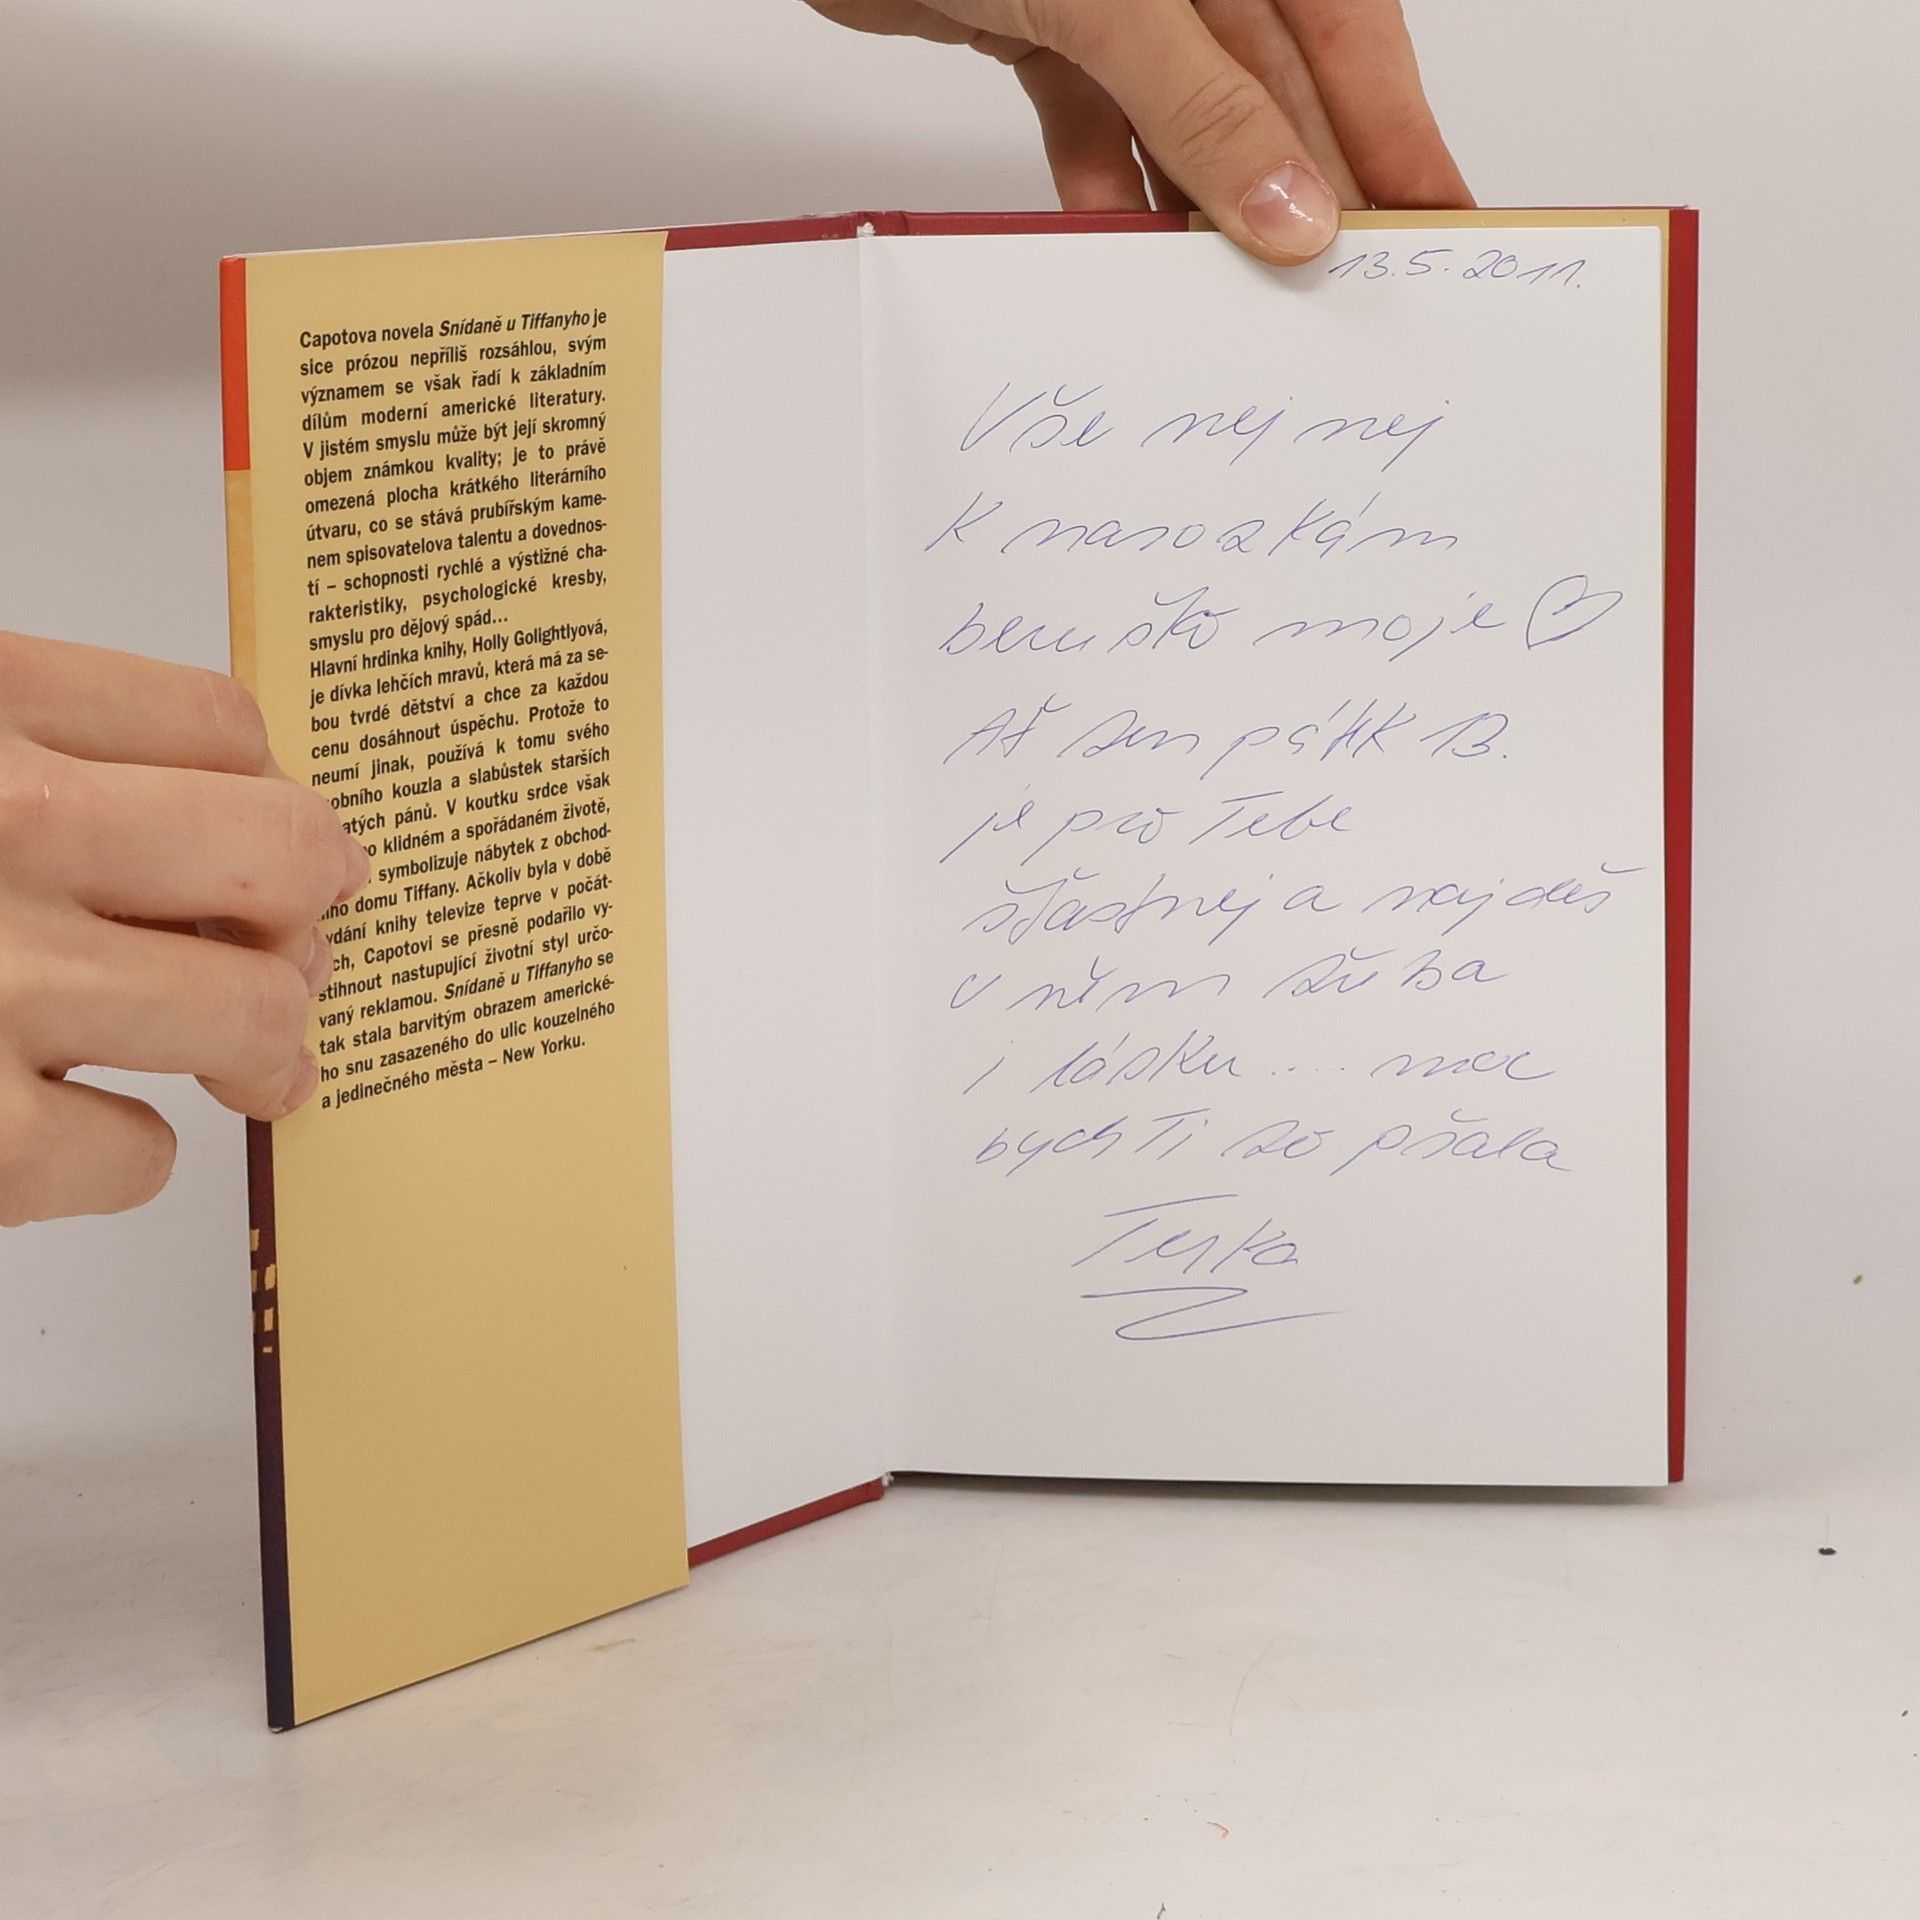 Capotova novela Snídaně u Tiffanyho je
sice prózou nepříliš rozsáhlou, svým
významem se však řadí k základním
dílům moderní americké literatury.
V jistém smyslu může být její skromný
objem známkou kvality; je to právě
omezená plocha krátkého literárního
útvaru, co se stává prubířským kame-
nem spisovatelova talentu a dovednos-
tí – schopnosti rychlé a výstižné cha-
rakteristiky, psychologické kresby,
smyslu pro dějový spád...
Hlavní hrdinka knihy, Holly Golightlyová,
je dívka lehčích mravů, která má za se-
bou tvrdé dětství a chce za každou
cenu dosáhnout úspěchu. Protože to
neumí jinak, používá k tomu svého
obního kouzla a slabůstek starších
atých pánů. V koutku srdce však
o klidném a spořádaném životě,
symbolizuje nábytek z obchod-
ího domu Tiffany. Ačkoliv byla v době
vydání knihy televize teprve v počát-
ch, Capotovi se přesně podařilo vy-
stihnout nastupující životní styl určo-
vaný reklamou. Snídaně u Tiffanyho se
tak stala barvitým obrazem americké-
ho snu zasazeného do ulic kouzelného
a jedinečného města – New Yorku.
13.5.2011.
Vše nej nej
K narozkám
beruško moje ♡
Ať den pátek 13.
je pro Tebe
šťastnej a najdeš
v něm třeba
i lásku.... moc
bych Ti to přála
Terka